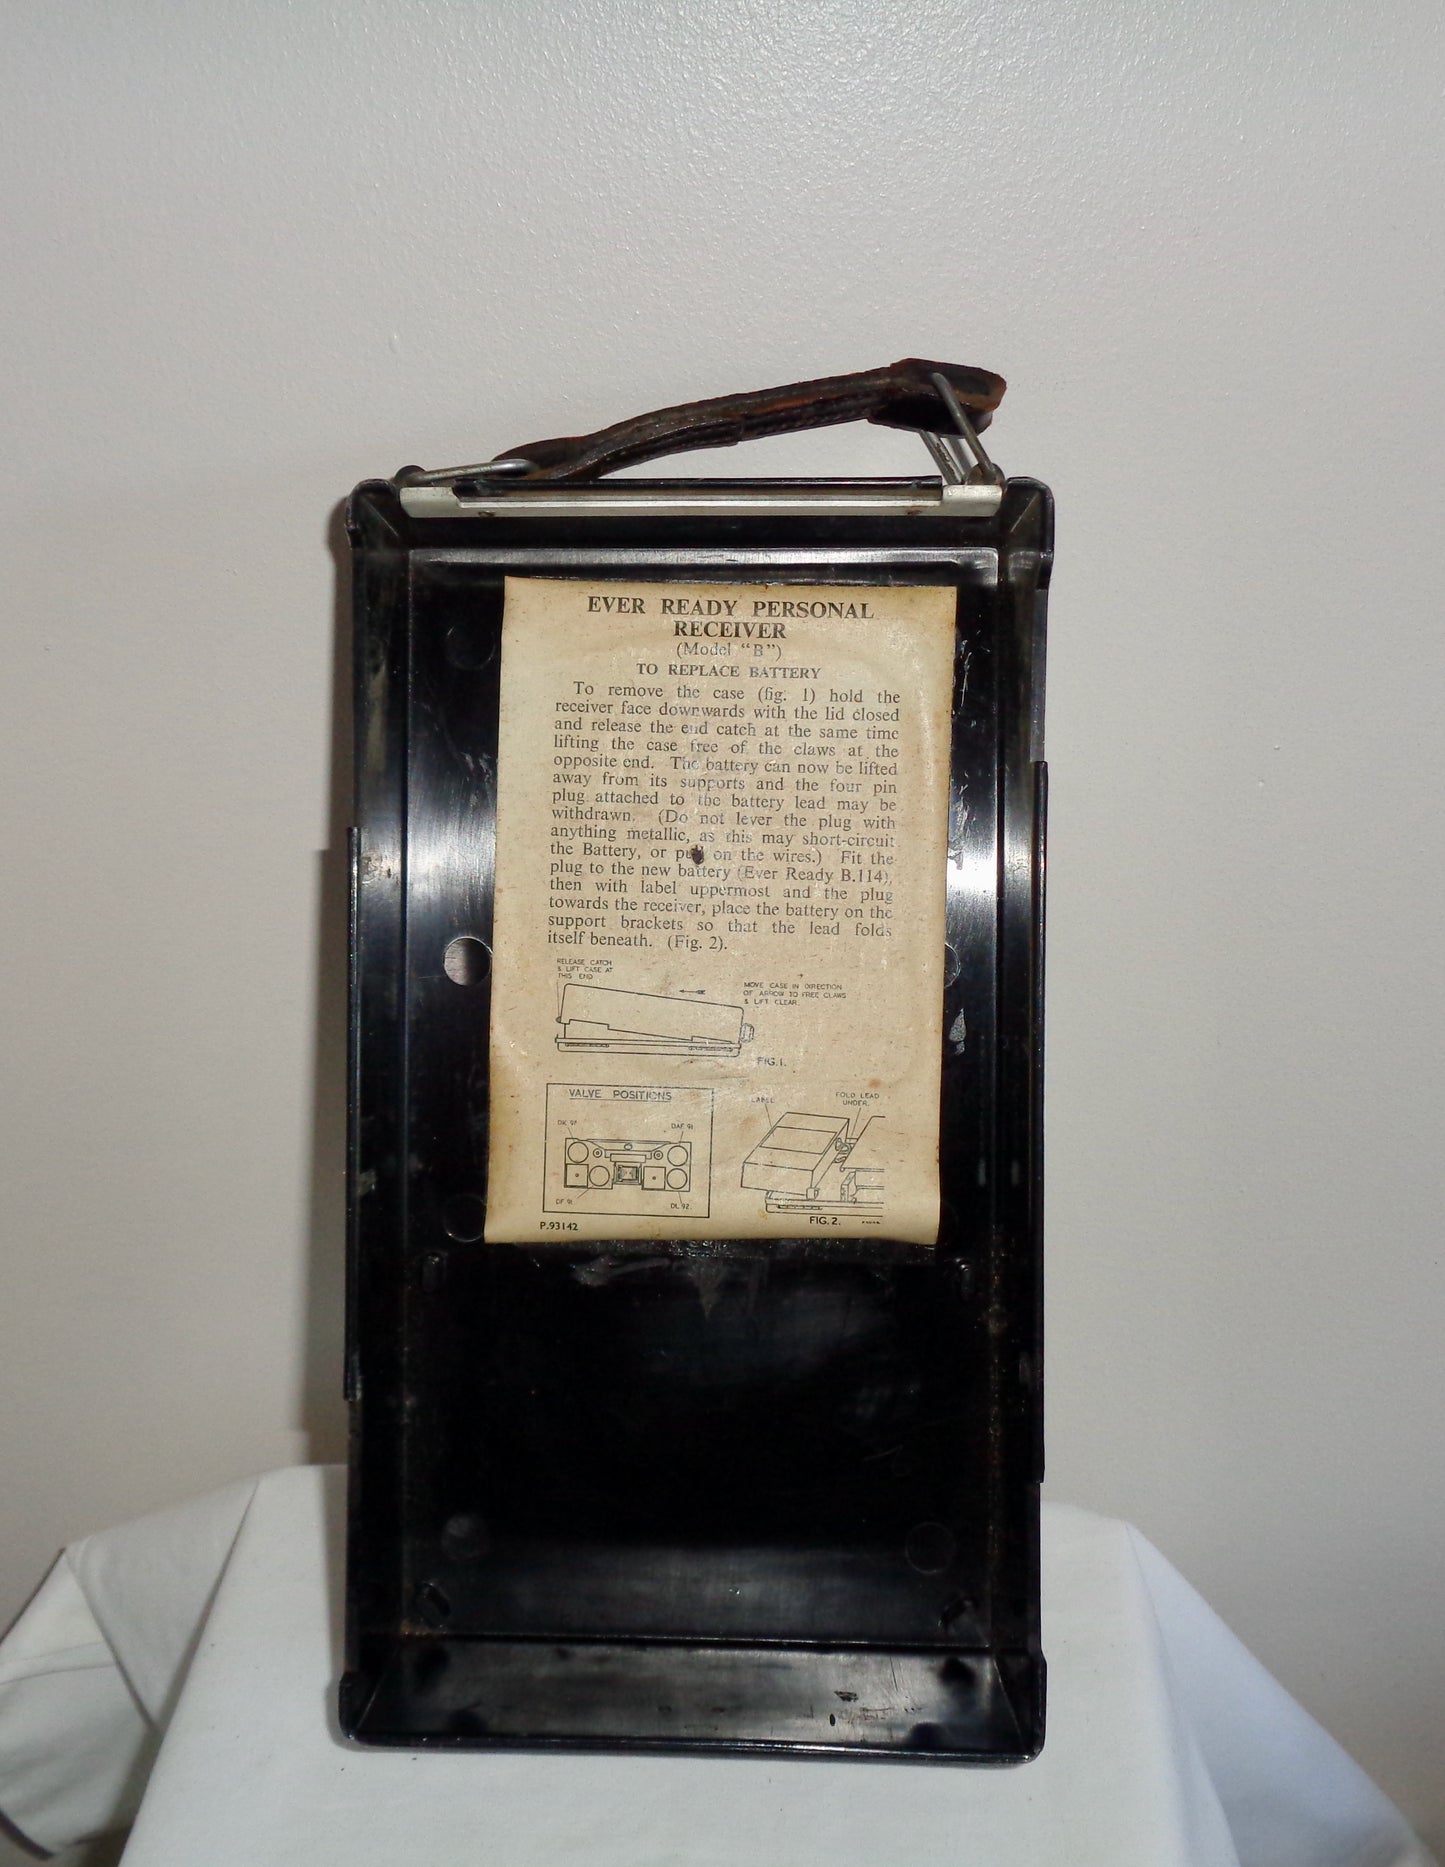 EVER READY PERSONAL
RECEIVER
(Model "B")
TO REPLACE BATTERY
To remove the case (fig. 1) hold the
receiver face downwards with the lid closed
and release the end catch at the same time
lifting the case free of the claws at the
opposite end. The battery can now be lifted
away from its supports and the four pin
plug attached to the battery lead may be
withdrawn. (Do not lever the plug with
anything metallic, as this may short-circuit
the Battery, or pull on the wires.) Fit the
plug to the new battery (Ever Ready B.114),
then with label uppermost and the plug
towards the receiver, place the battery on the
support brackets so that the lead folds
itself beneath. (Fig. 2).
RELEASE CATCH
& LIFT CASE AT
THIS END
MOVE CASE IN DIRECTION
OF ARROW TO FREE CLAWS
& LIFT CLEAR.
FIG.1.
VALVE POSITIONS
DK 97
DAF 91
DF 91
DL 92.
LABEL
FOLD LEAD
UNDER.
FIG. 2.
P.93142